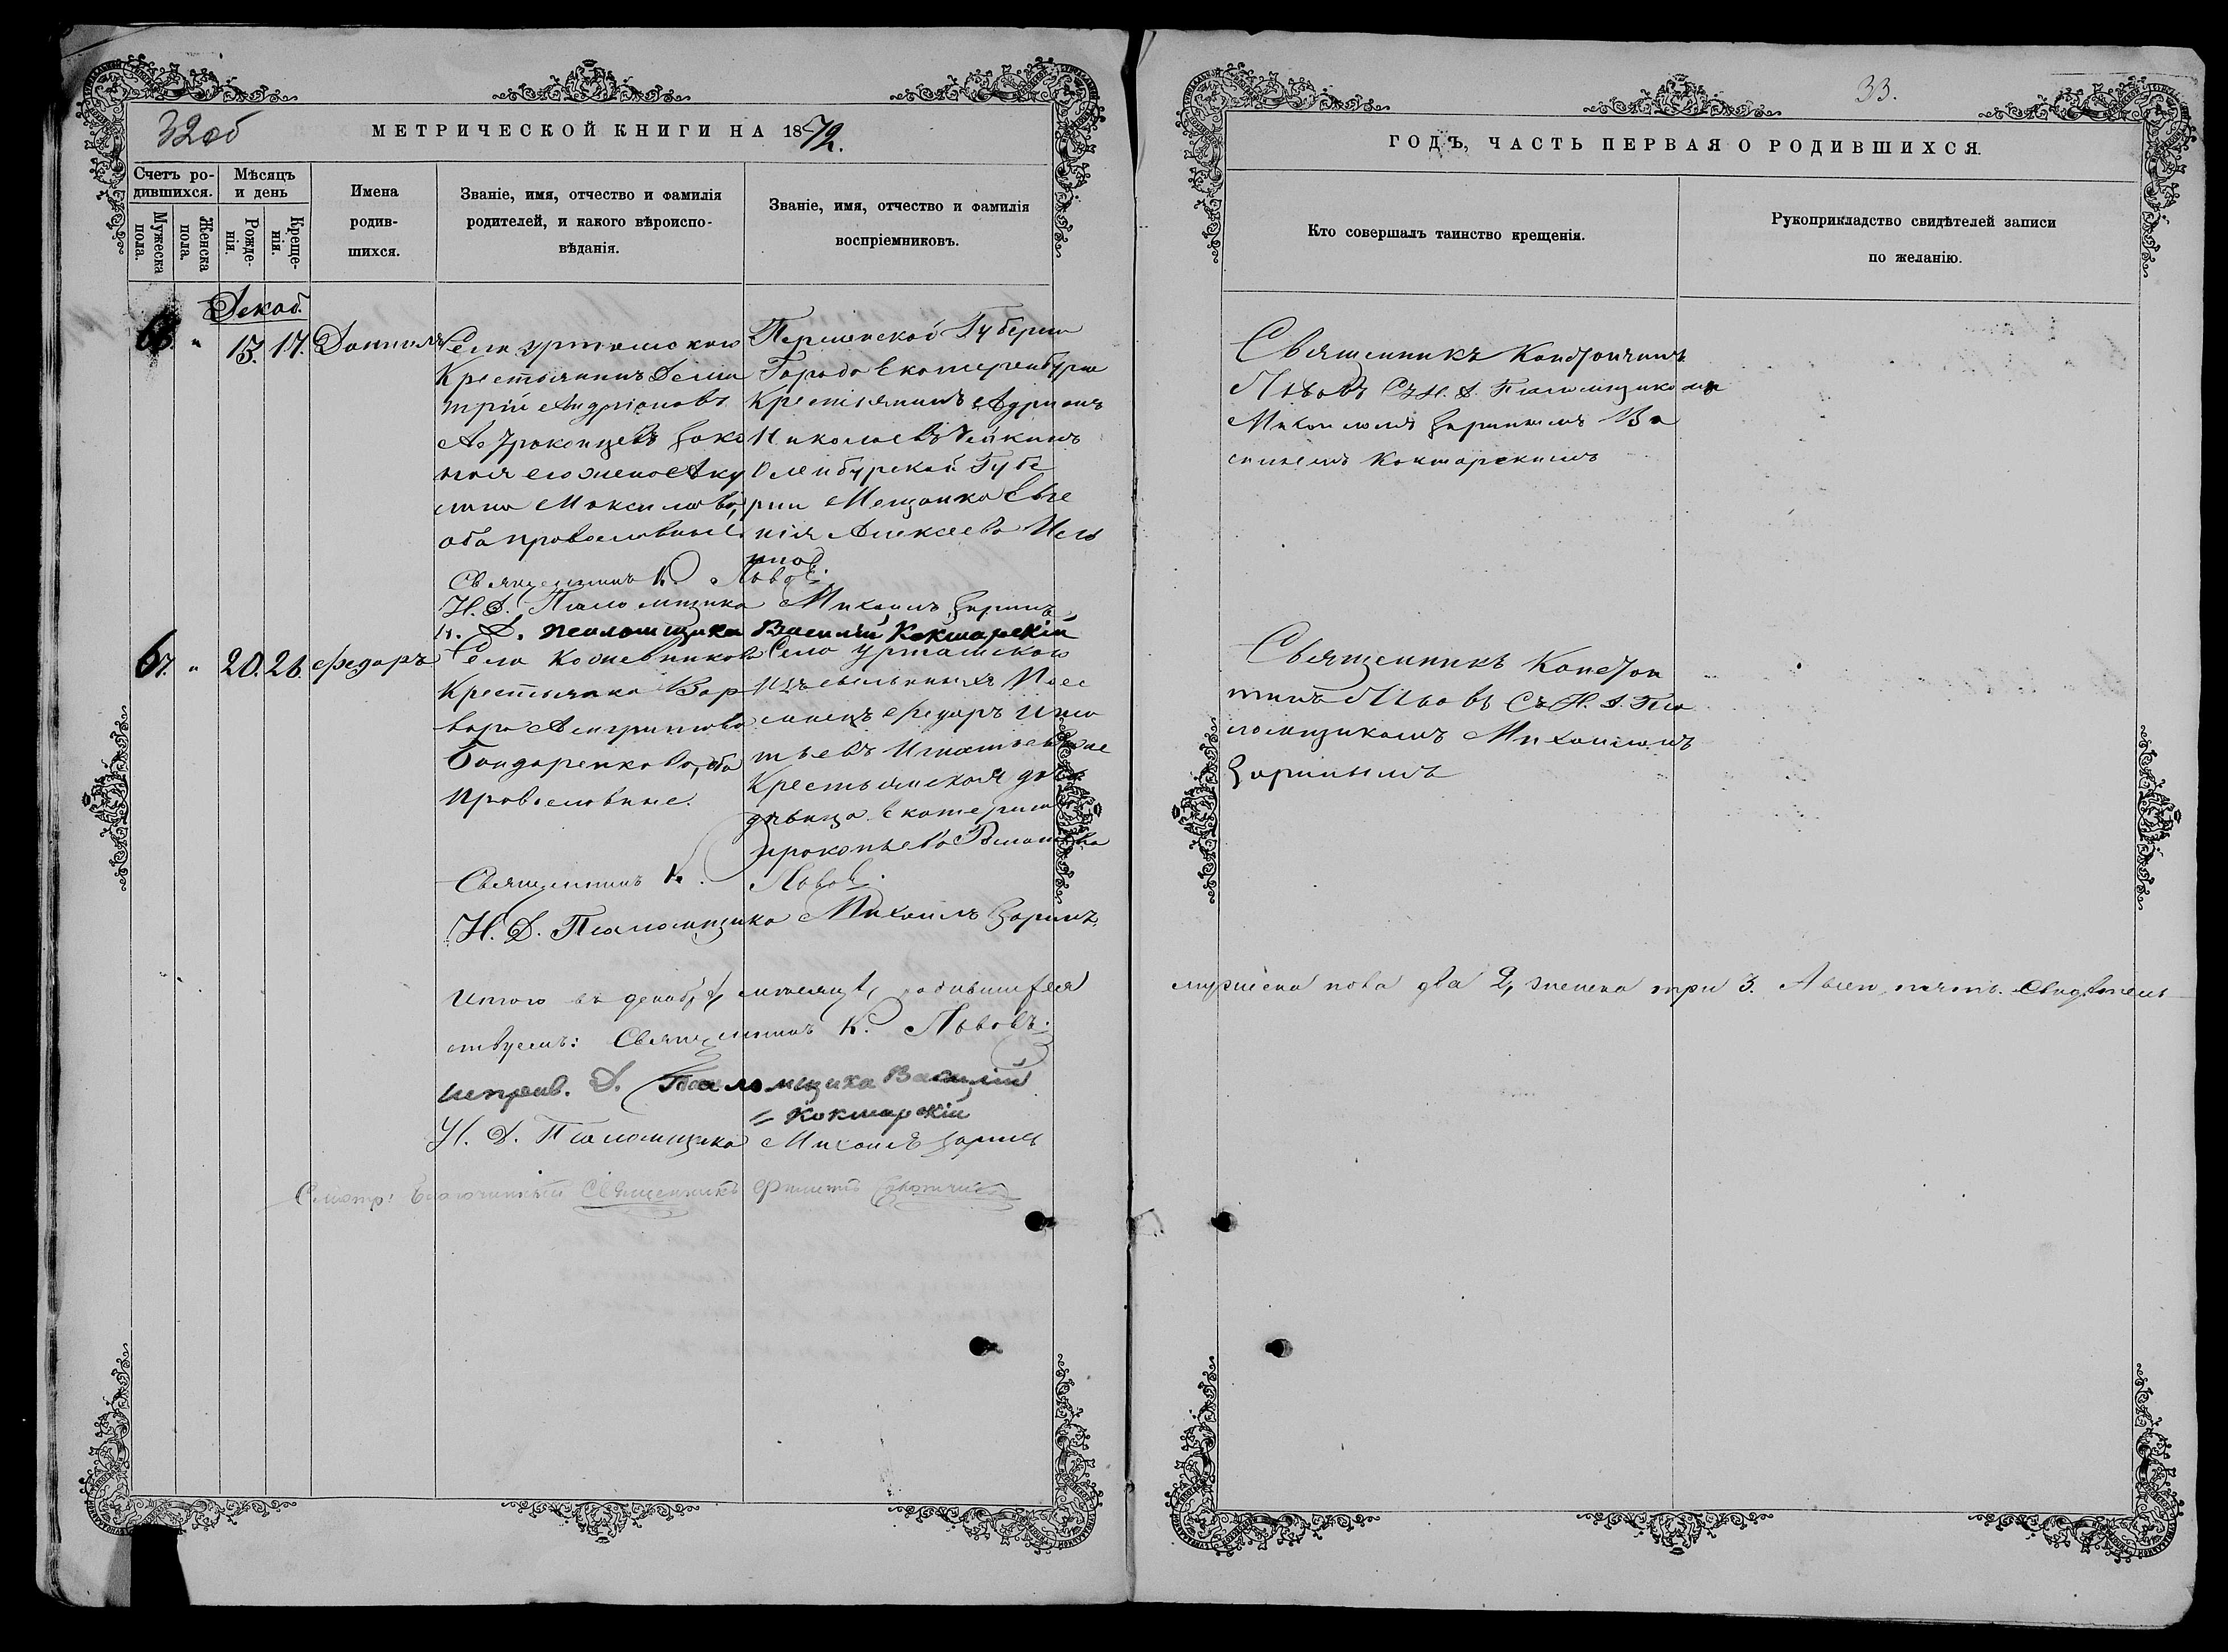 32об
МЕТРИЧЕСКОЙ КНИГИ НА 1872.
Счетъ ро-
дившихся.
Мѣсяцъ
и день
Мужеска
пола.
Женска
пола.
Рожде-
нія.
Креще-
нія.
Имена
родив-
шихся.
Званіе, имя, отчество и фамилія
родителей, и какого вѣроиспо-
вѣданія.
Званіе, имя, отчество и фамилія
воспріемниковъ.
Декаб.
66. " 15. 17. Даниилъ
Села Уртамскаго
Крестьянинъ Дими
трій Андріановъ
зако
ная его жена Аку
лина Максимова,
оба православные.
Пермской Губерніи
Города Екатеринбурга
Крестьянинъ Адріанъ
Николаевъ
Оренбургской Губе
рніи Мещанка Евге
нія Алексеева
Священникъ К. Львовъ.
И. Д. Псаломщика Михаилъ Заринъ
И. Д. псаломщика Василій Кокшарскій
67. " 20. 26. Федоръ
Села Кожевникова
Крестьянка Вар
вара
Бондаренкова, оба
Православные.
Села Уртамскаго
Изъ ссыльныхъ Посе
ленецъ Федоръ Игна
тьевъ
Крестьянская до
дѣвица Екатерина
Прокопьева
Священникъ К. Львовъ.
И. Д. Псаломщика Михаилъ Заринъ.
Итого въ декабрѣ мѣсяцѣ родившихся
ствуемъ: Священникъ К. Львовъ.
исправ. Д. Псаломщика Василій
= Кокшарскій
И. Д. Псаломщика Михаилъ Заринъ
Смотр: Благочинный Священникъ Филиппъ
33.
ГОДЪ, ЧАСТЬ ПЕРВАЯ О РОДИВШИХСЯ.
Кто совершалъ таинство крещенія.
Рукоприкладство свидѣтелей записи
по желанію.
Священникъ Константинъ
Львовъ Съ И. Д. Псаломщикомъ
Михаиломъ Заринымъ Ва
силіемъ Кокшарскимъ
Священникъ Констан
тинъ Львовъ Съ И. Д. Пса
ломщикомъ Михаиломъ
Заринымъ
мужеска пола два 2, женска три 3. А всего пять. Свидѣтель